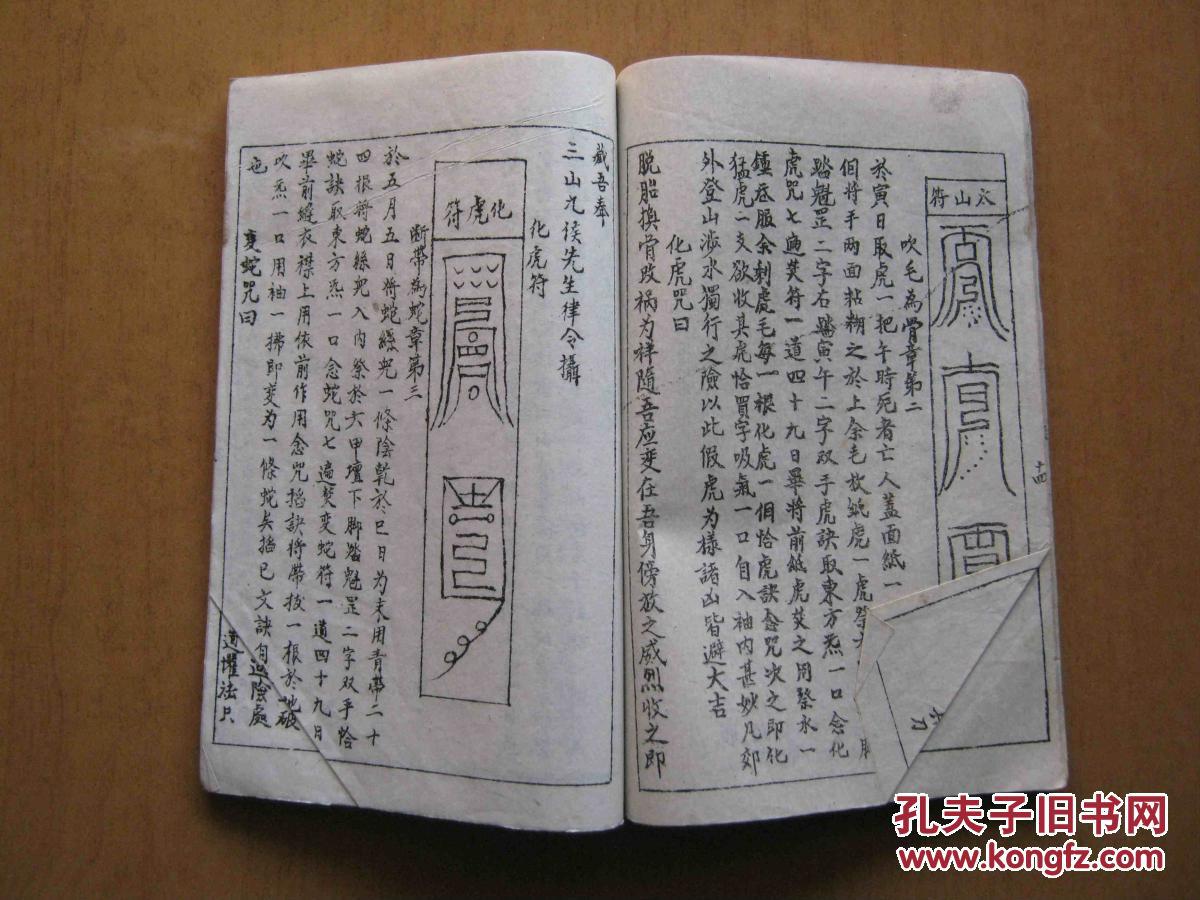 火山符
十四
吹毛為骨章第二
於寅日取虎一把午時死者亡人蓋面紙一
個将手两面粘糊之於上余毛放紙虎一虎祭
踏魁罡二字右踏寅午二字双手虎訣取東方炁一口念化
虎咒七遍焚符一道四十九日畢将前紙虎焚之用祭水一
鍾吞服余剩虎毛每一根化虎一個恰虎訣念咒次之即化
猛虎一支欲收其虎恰買字吸氣一口自入袖内甚妙凡郊
外登山涉水獨行之險以此假虎为樣諸凶皆避大吉
化虎咒曰
脱胎换骨改祸为祥隨吾应变在吾身傍放之威烈收之即
藏吾奉
三山九侯先生律令攝
化虎符
化虎符
断带為蛇章第三
於五月五日将蛇絲兜一條陰乾於巳日为末用青带二十
四根将蛇絲兜入内祭於六甲壇下脚踏魁罡二字双手恰
蛇訣取東方炁一口念蛇咒七遍焚变蛇符一道四十九日
畢前縫衣襟上用依前作用念咒掐訣将带拔一根於地
吹炁一口用袖一拂即变为一條蛇矣掐巳文訣自
也
变蛇咒曰
險處
道懼法只
孔夫子旧书网
www.kongfz.com